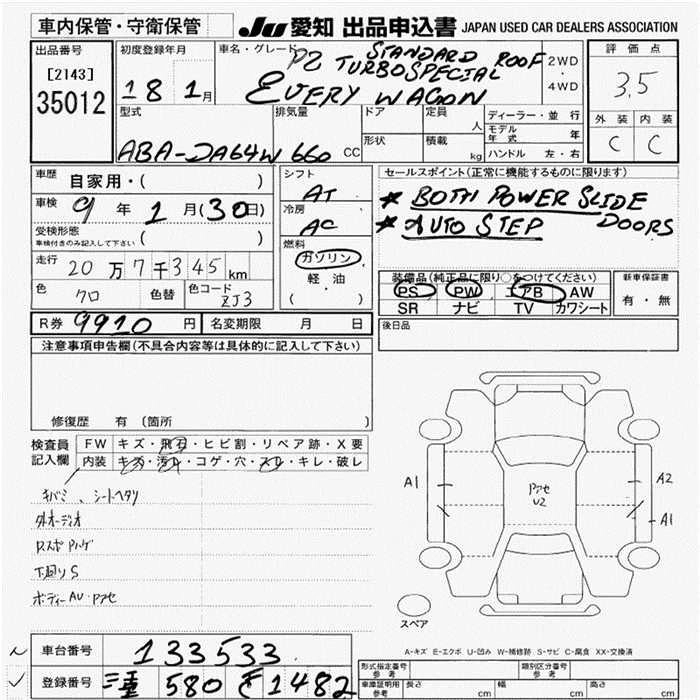 車内保管・守衛保管 JU 愛知 出品申込書 JAPAN USED CAR DEALERS ASSOCIATION
出品番号
[2143]
35012
初度登録年月
18 1月
車名・グレード
PZ STANDARD ROOF
TURBO SPECIAL
EVERY WAGON
2WD
・
4WD
評価点
3.5
外装 内装
C C
型式
ABA-DA64W
排気量
660 CC
ドア
形状
定員
人
積載
kg
ディーラー・並行
モデル年式 年
ハンドル 左・右
車歴 自家用・( )
車検 9年1月(30日)
受検形態
車検付きのみ記入して下さい ( )
走行 20万7千345km
色 クロ 色替 色コード ZJ3
シフト
AT
冷房
AC
燃料
ガソリン
・
軽・油
( )
セールスポイント(正常に機能するものに限ります)
* BOTH POWER SLIDE
DOORS
* AUTO STEP
装備品(純正品に限り○をつけてください)
PS PW エアB AW
SR ナビ TV カワシート
新車保証書
有・無
R券 9920円 名変期限 月 日
後日品
注意事項申告欄(不具合内容等は具体的に記入して下さい)
修復歴 有 (箇所 )
検査員
記入欄
FW キズ・飛石・ヒビ割・リペア跡・X要
内装 キズ・汚れ・コゲ・穴・スレ・キレ・破レ
キバミ、シートヘタリ
外オーディオ
下廻りS
A1 A2
A1
U2
スペア
A-キズ E-エクボ U-凹み W-補修跡 S-サビ C-腐食 XX-交換済
車台番号 133533
登録番号 三重 580 そ 1482
型式指定番号
参考
類別区分番号
参考
車庫証明用
参考
長さ cm 幅 cm 高さ cm